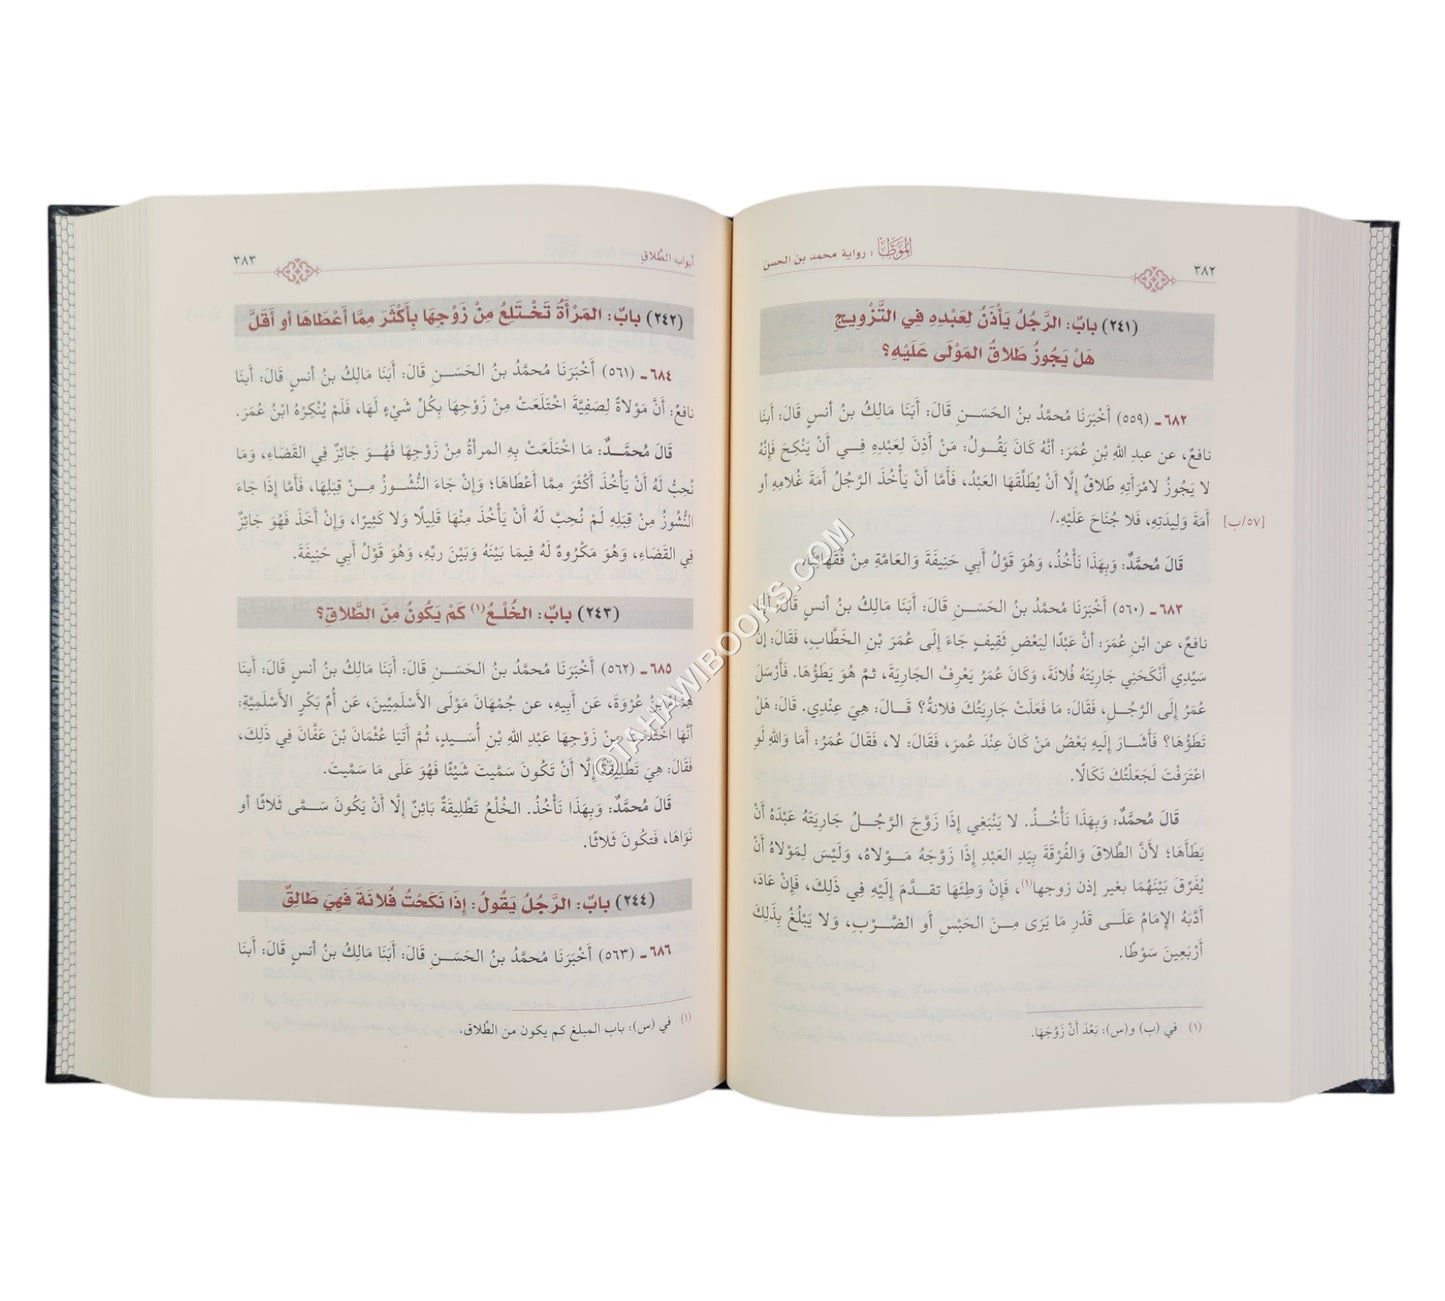 ٣٨٢
المُوَطَّأ : رواية محمد بن الحسن
(٢٤١) بابٌ: الرَّجُلُ يَأْذَنُ لعَبْدِهِ فِي التَّزْوِيجِ
هَلْ يَجُوزُ طَلاقُ المَوْلَى عَلَيْهِ؟
٦٨٢ ـ (٥٥٩) أَخْبَرَنَا مُحمَّدُ بنُ الحَسَنِ قَالَ: أَبَنَا مَالِكُ بنُ أنسٍ قَالَ: أبنَا
نافعٌ، عن عبدِ اللهِ بْنِ عُمَرَ: أنَّهُ كَانَ يَقُولُ: مَنْ أَذِنَ لِعَبْدِهِ فِي أَنْ يَنْكِحَ فَإِنَّهُ
لا يَجُوزُ لامْرَأَتِهِ طَلاقٌ إِلَّا أَنْ يُطَلِّقَهَا العَبْدُ، فَأَمَّا أَنْ يَأْخُذَ الرَّجُلُ أَمَةَ غُلامِهِ أو
أَمَةَ وَلِيدَتِهِ، فَلا جُنَاحَ عَلَيْهِ./
[٥٧/ب]
قَالَ مُحمَّدٌ: وَبِهَذَا نَأْخُذُ، وَهُوَ قَوْلُ أَبِي حَنِيفَةَ وَالعَامَّةِ مِنْ فُقَهَائِنَا.
٦٨٣ ـ (٥٦٠) أَخْبَرَنَا مُحمَّدُ بنُ الحَسَنِ قَالَ: أَبَنَا مَالِكُ بنُ أنسٍ قَالَ: أبنَا
نافعٌ، عن ابْنِ عُمَرَ: أنَّ عَبْدًا لِبَعْضِ ثَقِيفٍ جَاءَ إِلَى عُمَرَ بْنِ الخَطَّابِ، فَقَالَ: إنَّ
سَيِّدِي أَنْكَحَنِي جَارِيَتَهُ فُلانَةَ، وَكَانَ عُمَرُ يَعْرِفُ الجَارِيَةَ، ثمَّ هُوَ يَطَؤُهَا. فَأَرْسَلَ
عُمَرُ إِلَى الرَّجُلِ، فَقَالَ: مَا فَعَلَتْ جَارِيَتُكَ فلانةُ؟ قَالَ: هِيَ عِنْدِي. قَالَ: هَلْ
تَطَؤُهَا؟ فَأَشَارَ إِلَيْهِ بَعْضُ مَنْ كَانَ عِنْدَ عُمرَ، فَقَالَ: لا، فَقَالَ عُمَرُ: أمَا وَاللهِ لَوِ
اعْتَرَفْتَ لَجَعَلْتُكَ نَكَالًا.
قَالَ مُحمَّدٌ: وَبِهَذَا نَأْخُذُ. لا يَنْبَغِي إِذَا زَوَّجَ الرَّجُلُ جَارِيَتَهُ عَبْدَهُ أَنْ
يَطَأَهَا؛ لأَنَّ الطَّلاقَ وَالفُرْقَةَ بِيَدِ العَبْدِ إِذَا زَوَّجَهُ مَوْلاهُ، وَلَيْسَ لِمَوْلاهُ أَنْ
يُفَرِّقَ بَيْنَهُمَا بغير إذن زوجها(١)، فَإِنْ وَطِئَهَا تقدَّمَ إِلَيْهِ فِي ذَلِكَ، فَإِنْ عَادَ،
أَدَّبَهُ الإِمَامُ عَلَى قَدْرِ مَا يَرَى مِنَ الحَبْسِ أَوِ الضَّرْبِ، وَلا يَبْلُغُ بِذَلِكَ
أَرْبَعِينَ سَوْطًا.
(١) في (ب) و(س): بَعْدَ أَنْ زَوَّجَهَا.
أبواب الطَّلاقِ
٣٨٣
(٢٤٢) بابٌ: المَرْأَةُ تَخْتَلِعُ مِنْ زَوْجِهَا بِأَكْثَرَ مِمَّا أَعْطَاهَا أو أَقَلَّ
٦٨٤ ـ (٥٦١) أَخْبَرَنَا مُحمَّدُ بنُ الحَسَنِ قَالَ: أَبَنَا مَالِكُ بنُ أنسٍ قَالَ: أبنَا
نافعٌ: أنَّ مَوْلاةً لِصَفِيَّةَ اخْتَلَعَتْ مِنْ زَوْجِهَا بِكُلِّ شَيْءٍ لَهَا، فَلَمْ يُنْكِرْهُ ابْنُ عُمَرَ.
قَالَ مُحمَّدٌ: مَا اخْتَلَعَتْ بِهِ المرأةُ مِنْ زَوْجِهَا فَهُوَ جَائِزٌ فِي القَضَاءِ، وَمَا
نُحِبُّ لَهُ أَنْ يَأْخُذَ أَكْثَرَ مِمَّا أَعْطَاهَا؛ وَإِنْ جَاءَ النُّشُوزُ مِنْ قِبَلِهَا، فَأَمَّا إِذَا جَاءَ
النُّشُوزُ مِنْ قِبَلِهِ لَمْ نُحِبَّ لَهُ أَنْ يَأْخُذَ مِنْهَا قَلِيلًا وَلا كَثِيرًا، وَإِنْ أَخَذَ فَهُوَ جَائِزٌ
فِي القَضَاءِ، وَهُوَ مَكْرُوهٌ لَهُ فِيمَا بَيْنَهُ وَبَيْنَ ربِّهِ، وَهُوَ قَوْلُ أَبِي حَنِيفَةَ.
(٢٤٣) بابٌ: الخُلْعُ(١) كَمْ يَكُونُ مِنَ الطَّلاقِ؟
٦٨٥ ـ (٥٦٢) أَخْبَرَنَا مُحمَّدُ بنُ الحَسَنِ قَالَ: أَبَنَا مَالِكُ بنُ أنسٍ قَالَ: أبنَا
هِشَامُ بنُ عُرْوَةَ، عَن أَبِيهِ، عن جُمْهَانَ مَوْلَى الأَسْلَمِيِّينَ، عَن أُمِّ بَكْرٍ الأَسْلَمِيَّةِ:
أنَّهَا اخْتَلَعَتْ مِنْ زَوْجِهَا عَبْدِ اللهِ بْنِ أُسَيدٍ، ثُمَّ أَتَيَا عُثْمَانَ بْنَ عَفَّانَ فِي ذَلِكَ،
فَقَالَ: هِيَ تَطْلِيقَةٌ إِلَّا أَنْ تَكُونَ سَمَّيتَ شَيْئًا فَهُوَ عَلَى مَا سَمَّيتَ.
قَالَ مُحمَّدٌ: وَبِهَذَا نَأْخُذُ. الخُلْعُ تَطْلِيقَةٌ بَائِنٌ إِلَّا أَنْ يَكُونَ سَمَّى ثَلاثًا أو
نَوَاهَا، فَتكُونَ ثَلاثًا.
(٢٤٤) بابٌ: الرَّجُلُ يَقُولُ: إِذَا نَكَحْتُ فُلانَةَ فَهِيَ طَالِقٌ
٦٨٦ ـ (٥٦٣) أَخْبَرَنَا مُحمَّدُ بنُ الحَسَنِ قَالَ: أَبَنَا مَالِكُ بنُ أنسٍ قَالَ: أبنَا
(١) في (س): باب المبلغ كم يكون من الطَّلاق.
©TAHAWIBOOKS.COM